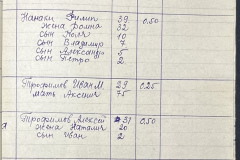 Филипп 39 0,50
жена Домна 32
сын Коля 10
сын Владимир 7
сын Александр 5
сын Петро 2
Трофимов Иван М. 29 0,25
мать Аксения 75
Трофимов Алексей 31 0,50
жена Наталия 20
сын Иван 2